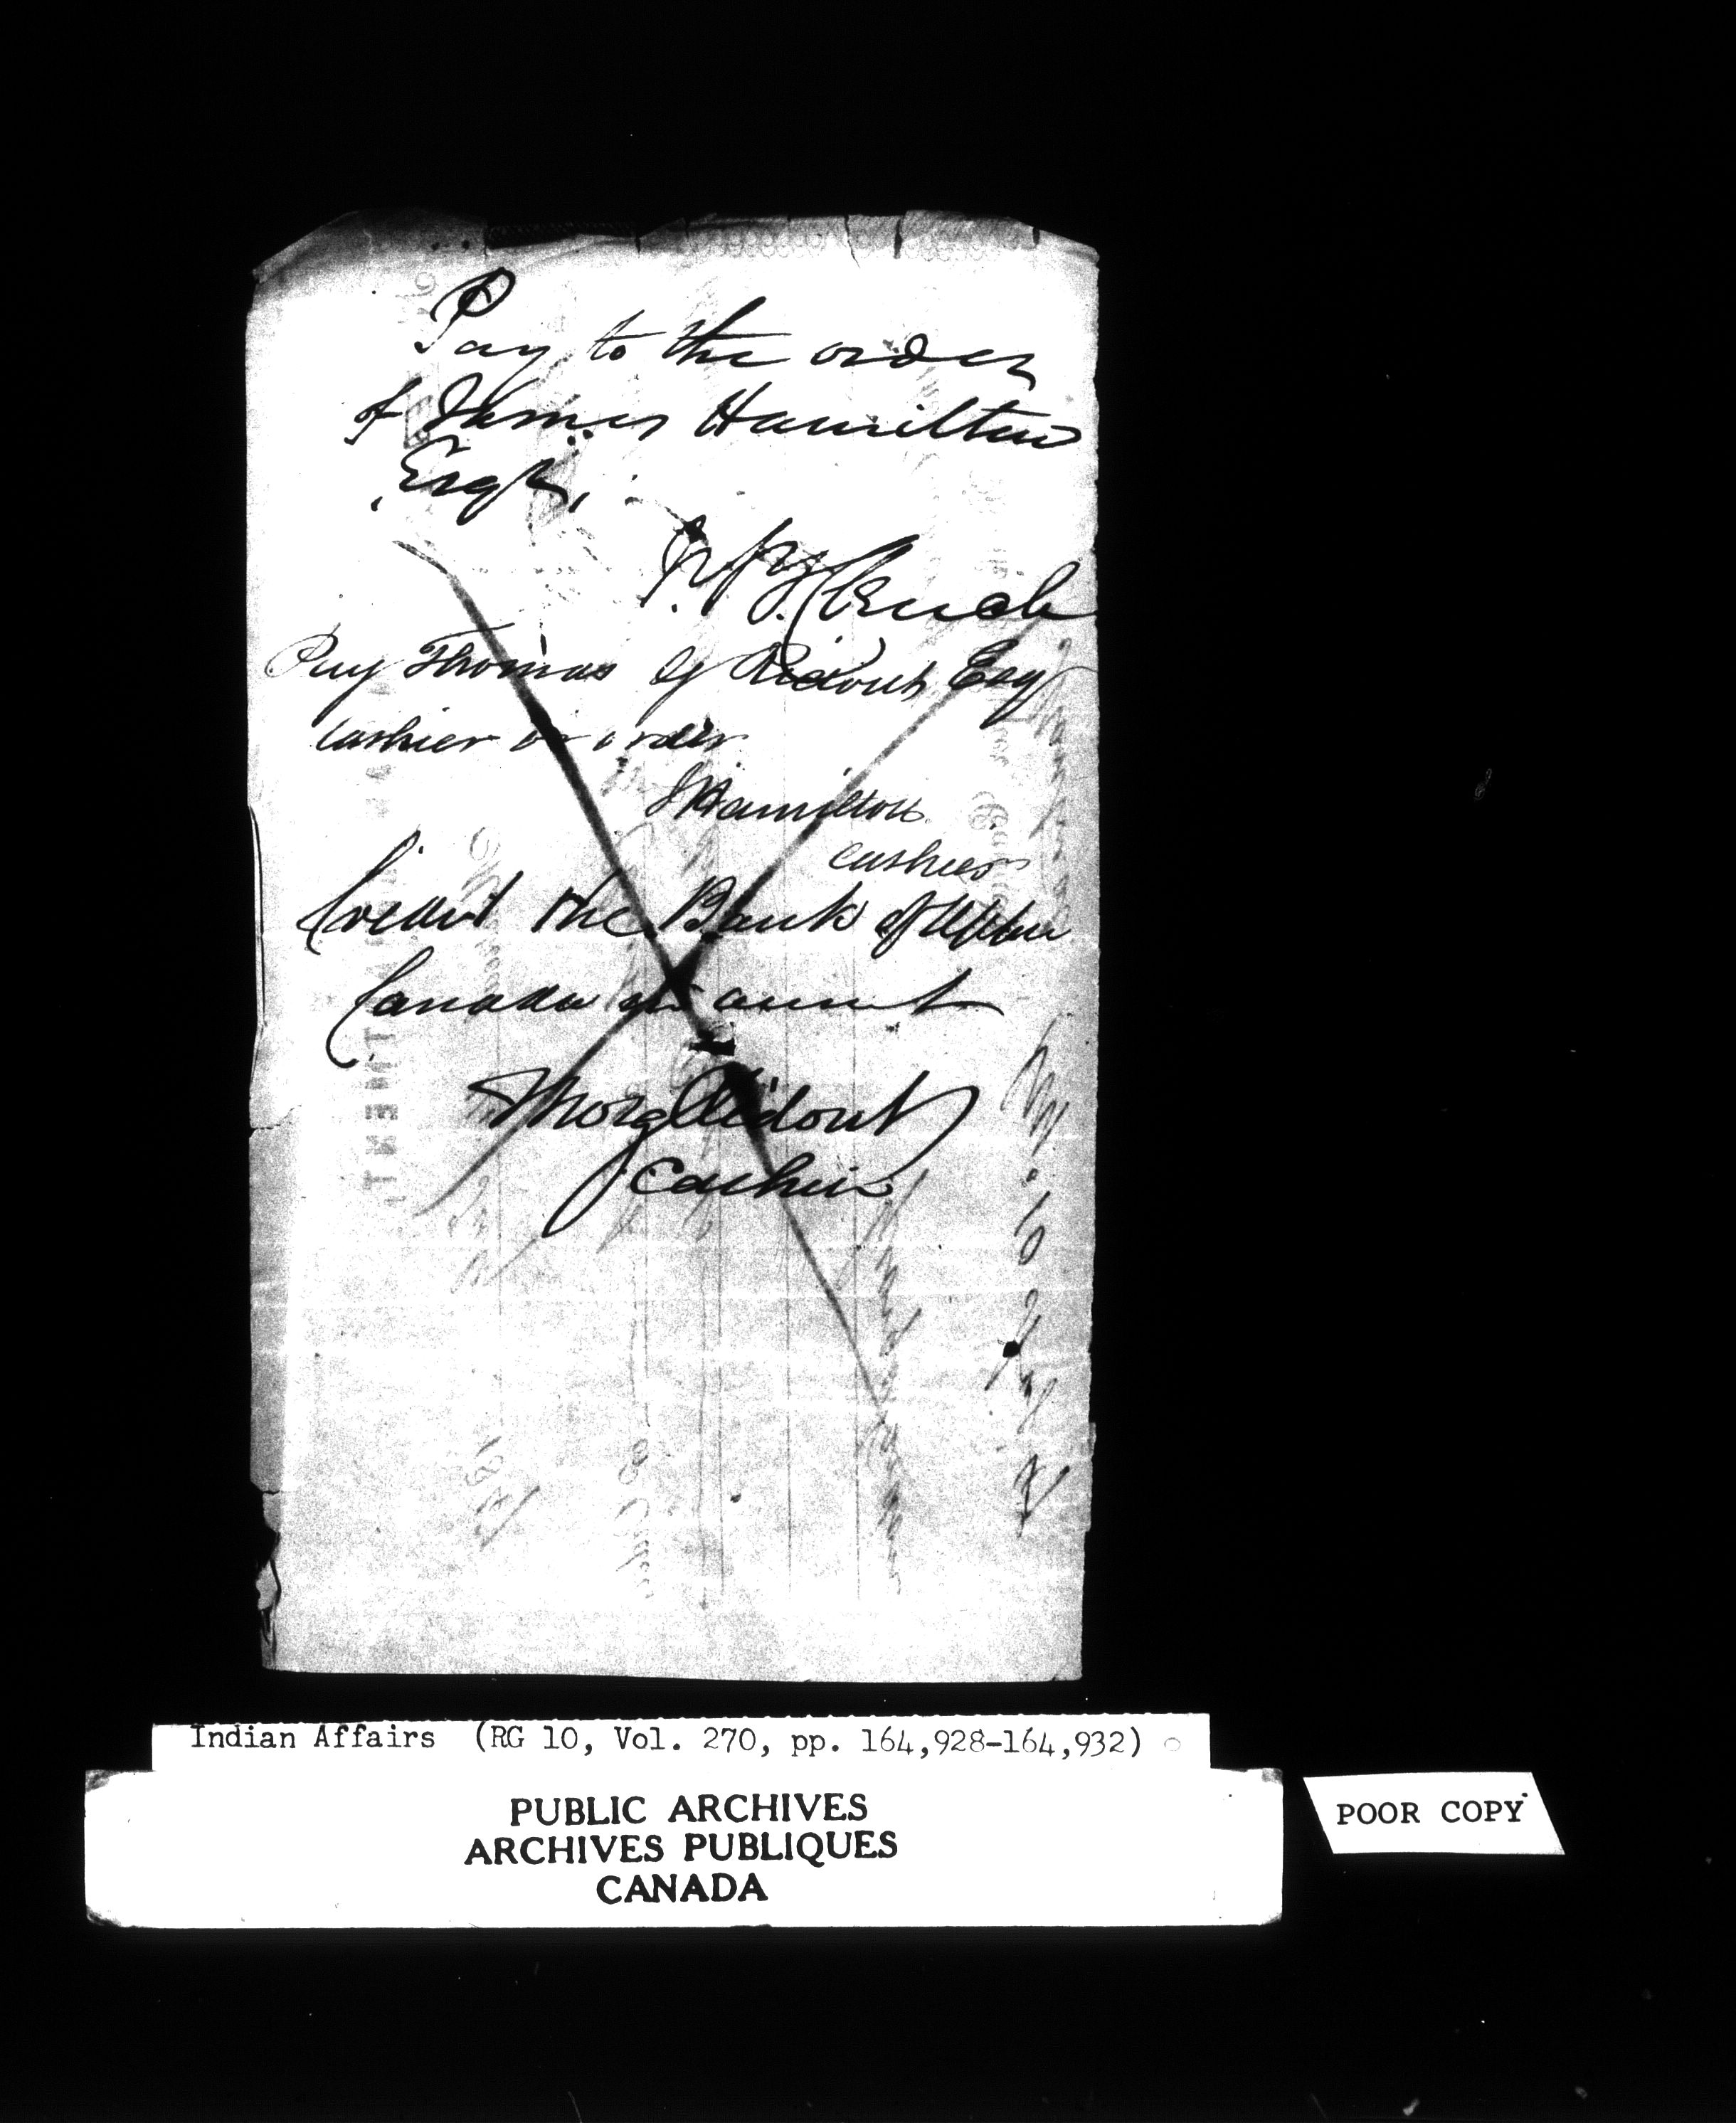 Pay to the order
of James Hamilton
Esqr,
Pay Thomas G Ridout Esq
Cashier or order
J Hamilton
Cashier
Credit the Bank of Upper
Canada
Thos G Ridout
Cashier
Indian Affairs (RG 10, Vol. 270, pp. 164,928-164,932)
PUBLIC ARCHIVES
ARCHIVES PUBLIQUES
CANADA
POOR COPY